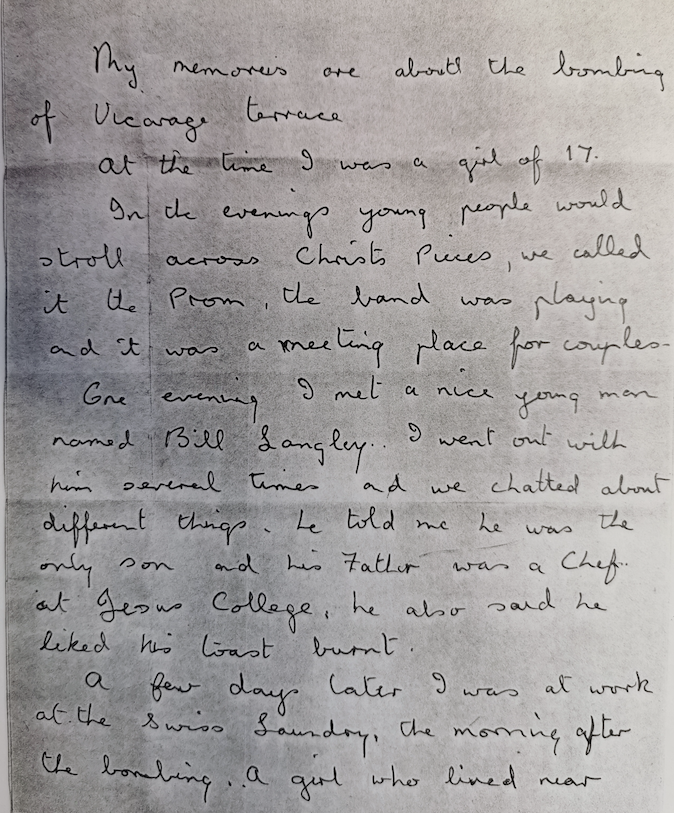 My memoreis are about the bombing
of Vicarage terrace
at the time I was a girl of 17.
In the evenings young people would
stroll across Christs Pieces, we called
it the Prom, the band was playing
and it was a meeting place for couples-
One evening I met a nice young man
named Bill Langley.. I went out with
him several times and we chatted about
different things. he told me he was the
only son and his Father was a Chef..
at Jesus College, he also said he
liked his toast burnt.
A few days later I was at work
at the Swiss Laundry, the morning after
the bombing.. A girl who lived near